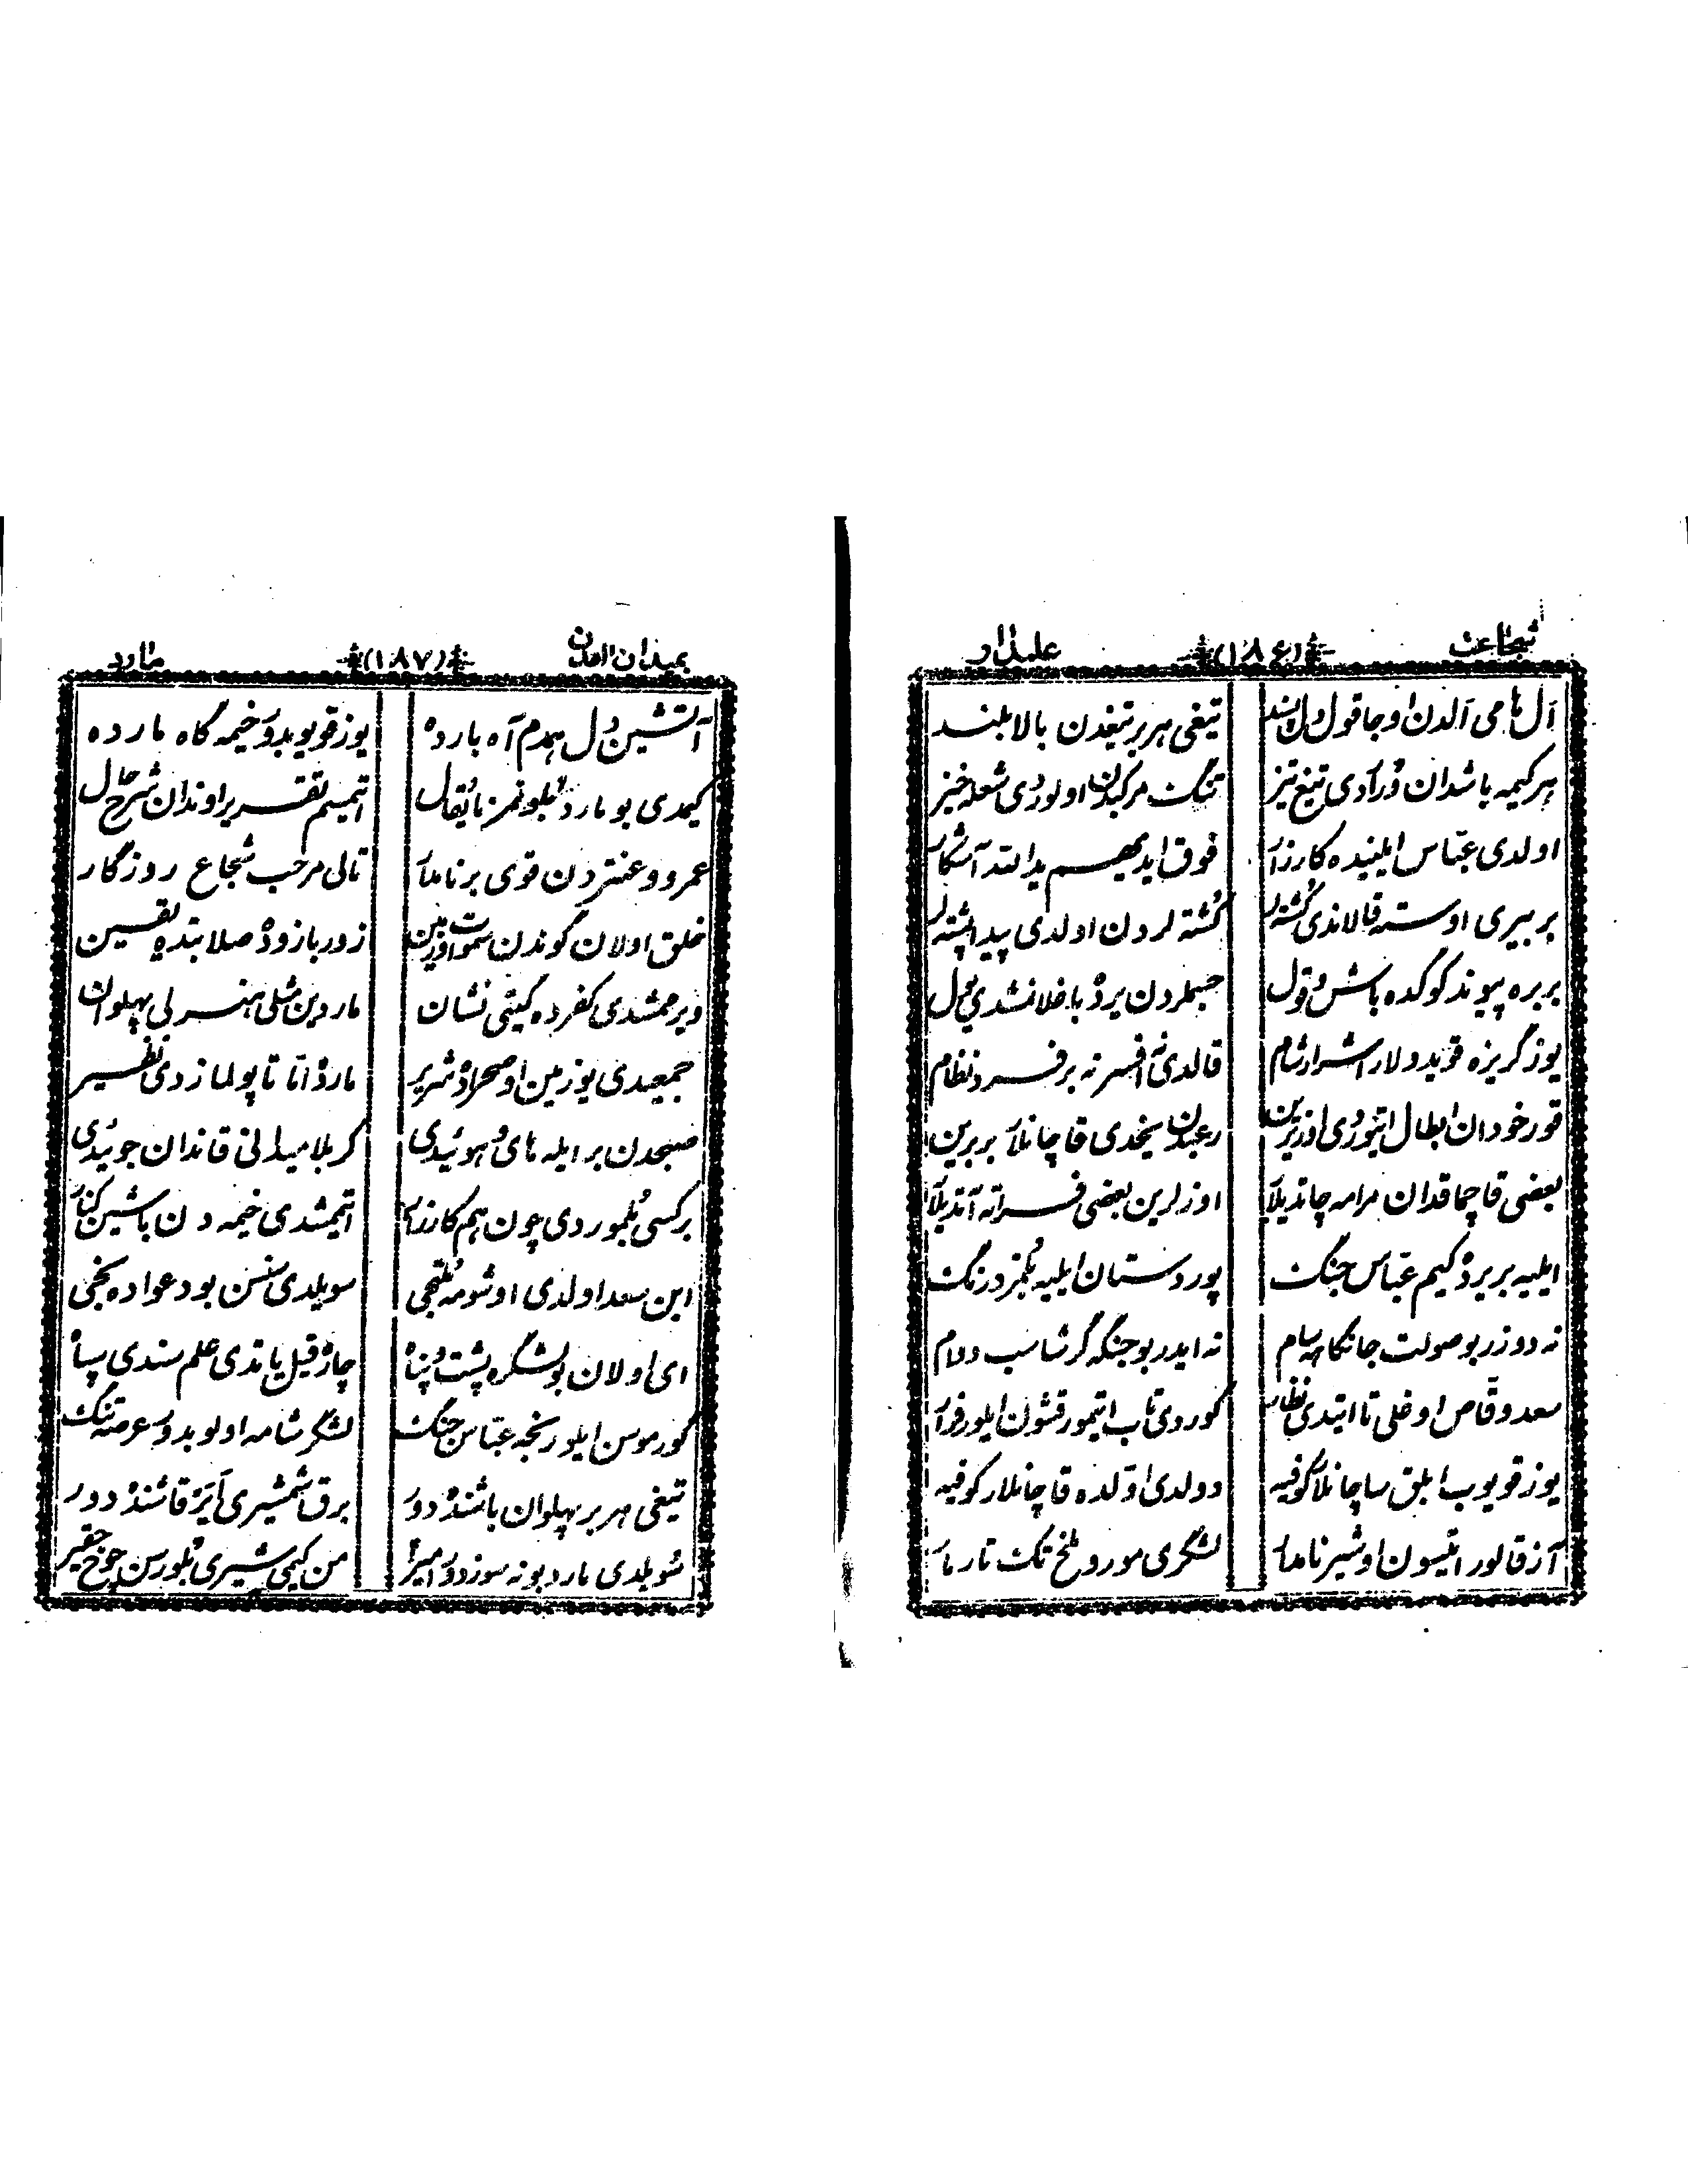 شجاعت (۱۸۶) علمدار
آل هاشمی آلدن اوجا قول دل پسند تیغی هر بر تیغدن بالا بلند
هر کیمه باشدان وُرآدی تیغ تیز تنگ مرکبدن اولوردی شعله خیز
اولدی عبّاس ایلینده کارزار فوق ایدیهم یدالله آشکار
بر بیری اوسته قالاندی کُشته لر کُشته لردن اولدی پیدا پشته لر
بربره پیوند کوکده باش و قول جسملردن یرده باغلانمشدی یول
یوز گریزه قویدولار اشرار شام قالدی نه افسر نه بر فرد نظام
قورخودان ابطال ایتوردی اوزیرین رعبدن یخدی قاچانلار بربرین
بعضی قاچماقدان مرامه چاتدیلار اوزلرین بعضی فراته آتدیلار
ایلیه بریرده کیم عبّاس جنگ پور دستان ایلیه بُلمز درنگ
نه دوزر بو صولت جانکاهه سام نه ایدر بو جنگه گرشاسب و لام
سعد وقّاص اوغلی تا ایتدی نظار کوردی تاب ایتمور قشون ایلور فرار
یوز قویوب ابلق ساچانلار کوفیه دولدی اوّلده قاچانلار کوفیه
آز قالور ایتسون او شیر نامدار لشگری مور و ملخ تک تار مار
بمیدان آمدن (۱۸۷) مارد
آتشین دل همدم آه بارده یوز قویوبدور خیمه گاه مارده
کیمدی بو مارد بُلونمز نا یُقال ایتمیسم تقریر اوندان شرح حال
عمرو و عنتردن قوی بر نامدار تالی مرحب شجاع روزگار
خلق اولان گوندن سموات و زمین زور بازوده صلابتده یقین
ویرممشدی کفرده گیتی نشان ماردین مثلی هنرلی پهلوان
جمعیدی یوزمین او صحراده شریر مارده امّا تاپولمازدی نظیر
صبحدن بر ایله های و هوئیدی کربلا میدانی قاندان جوئیدی
برکسی بُلموردی چون هم کارزار ایتمشدی خیمه دن باشین کنار
ابن سعد اولدی او شومه مُلتجی سویلدی سنسن بو دعواده نجی
ای اولان بو لشگره پشت و پناه چاره قیل یاتدی علم سندی سپاه
کورموسن ایلور نجه عبّاس جنگ لشگر شامه اولوبدور عرصه تنگ
تیغی هر بر پهلوان باشنده دور برق شمشیری آیَز قاشنده دور
سُویلدی مارد بو نه سوزدور امیر من کیمی شیری بُلورسن چوخ حقیر